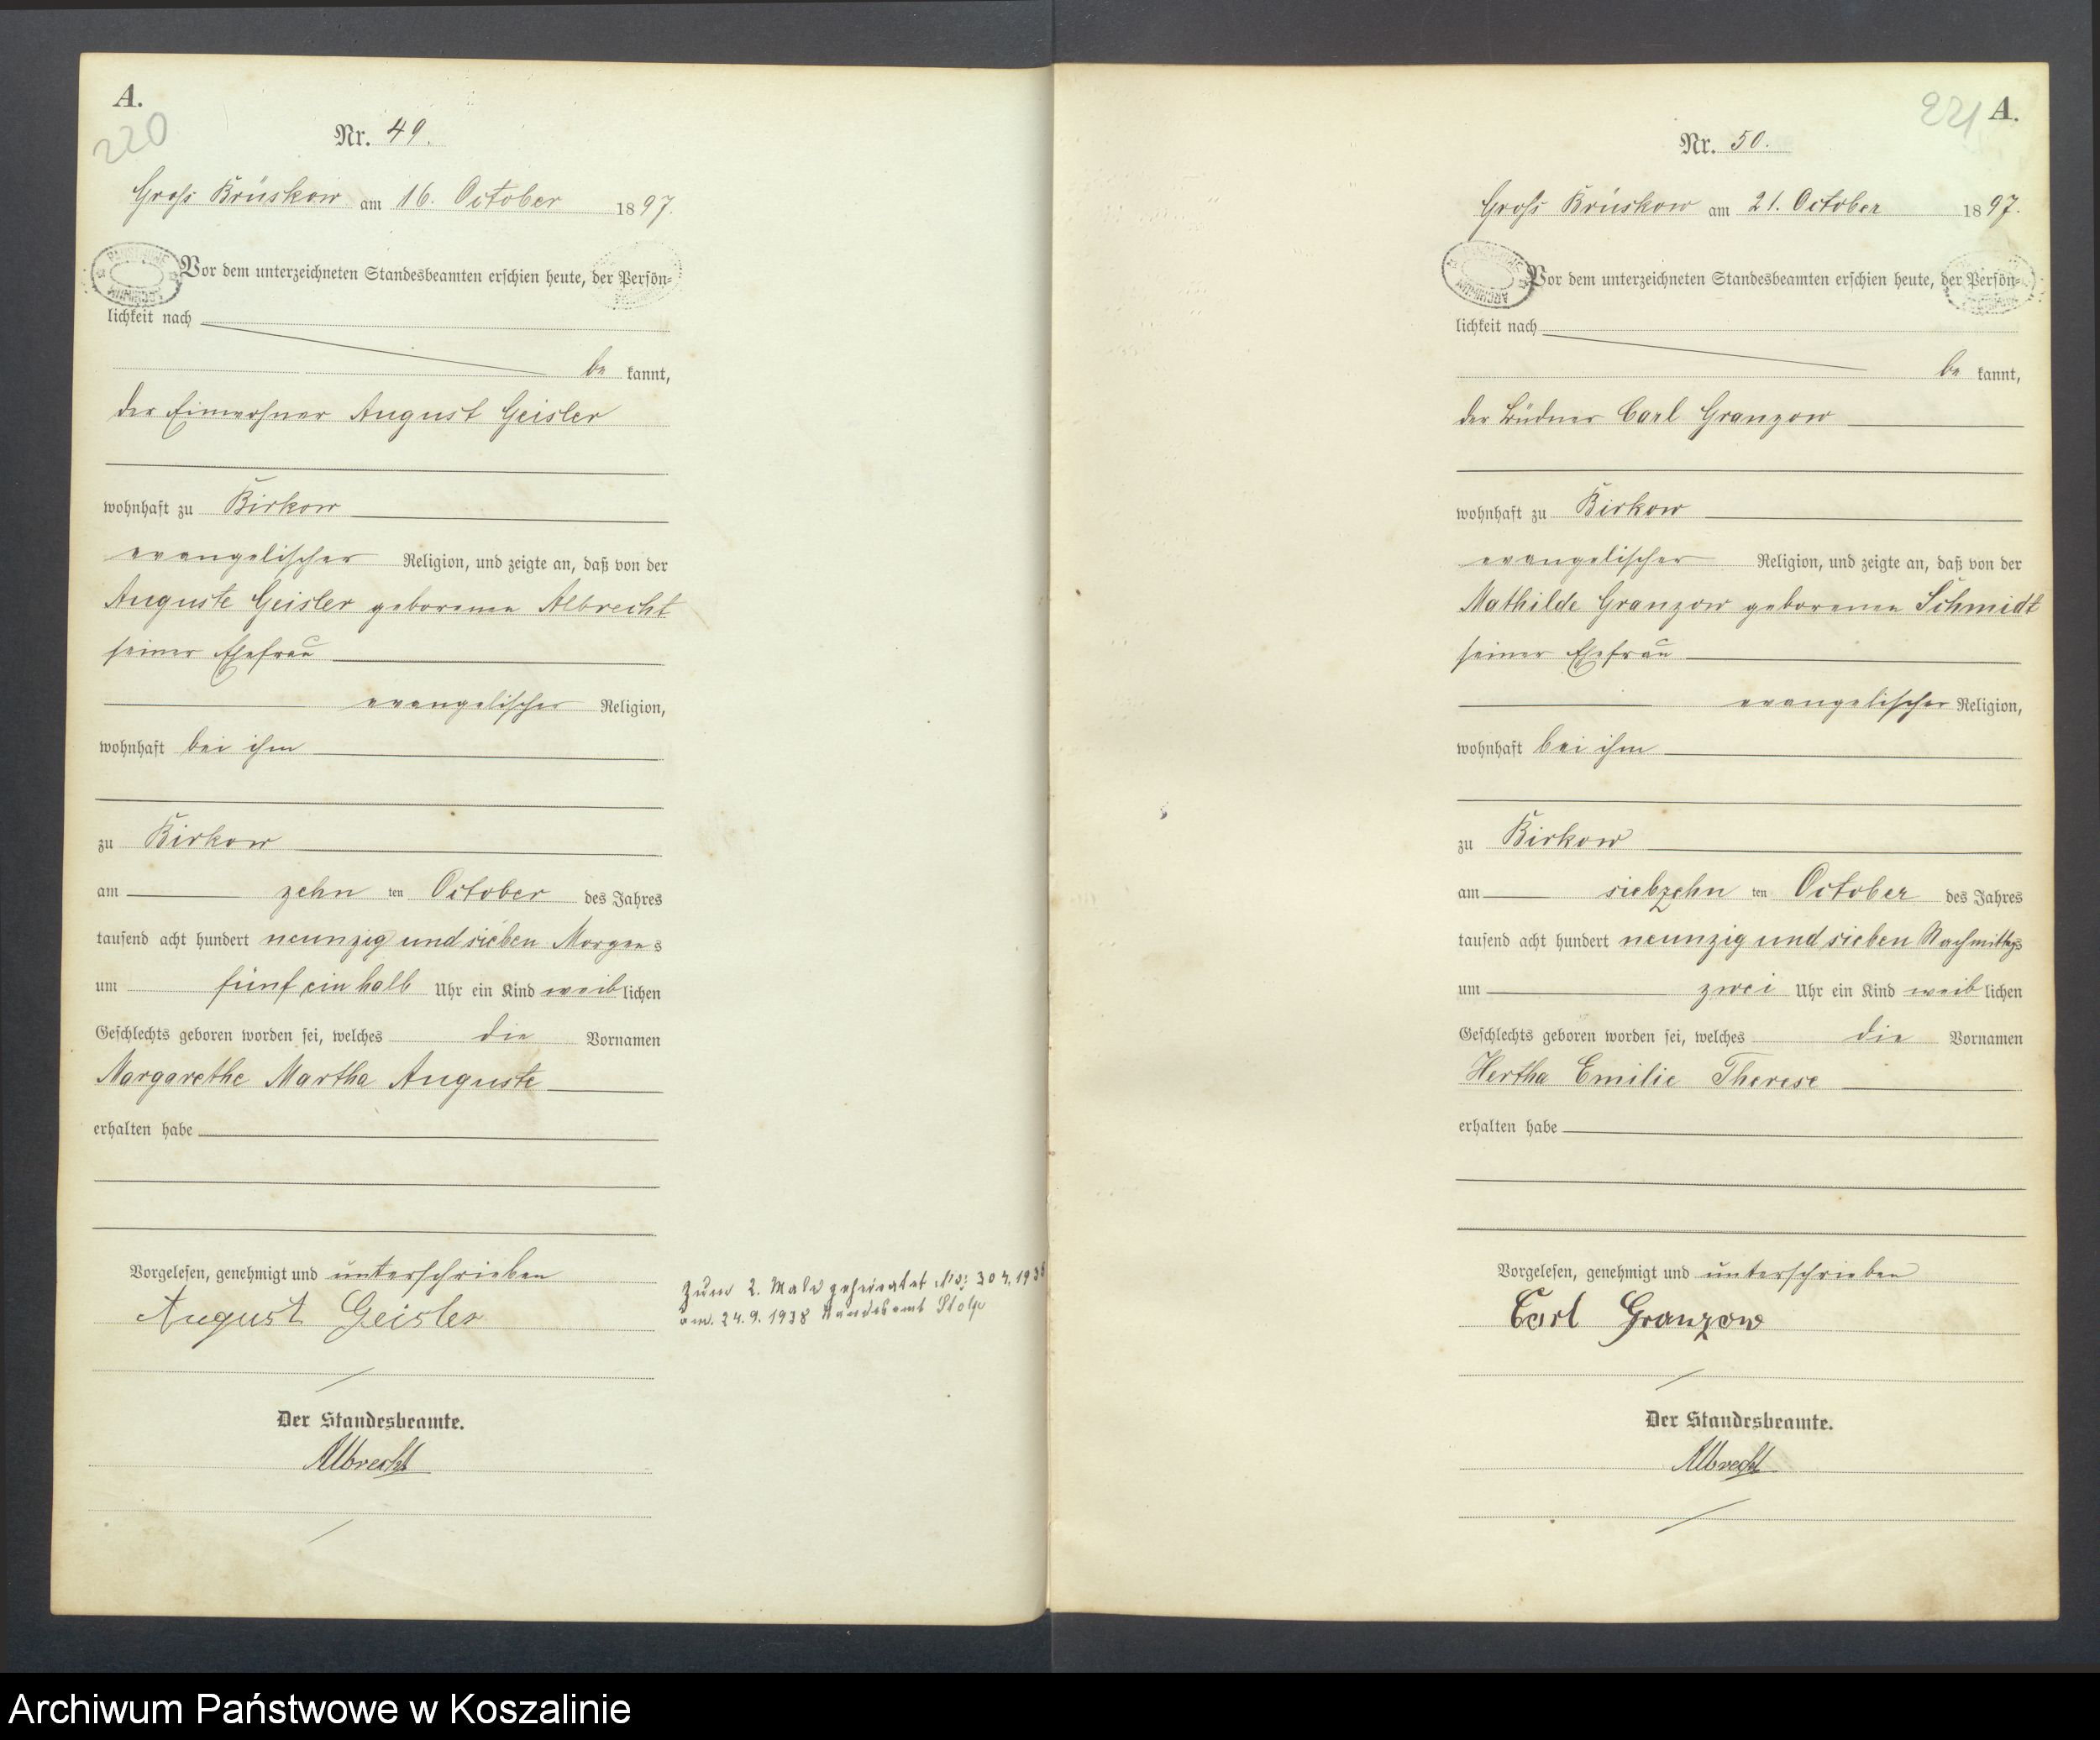 A.
220
Nr. 49.
Gross Brüskow am 16. October 1897.
Vor dem unterzeichneten Standesbeamten erschien heute, der Persön-
lichkeit nach
be kannt,
der Einwohner August Geisler
wohnhaft zu Birkow
evangelischer Religion, und zeigte an, daß von der
Auguste Geisler geborenen Albrecht
seiner Ehefrau
evangelischer Religion,
wohnhaft bei ihm
zu Birkow
am zehn ten October des Jahres
tausend acht hundert neunzig und sieben Morgens
um fünf ein halb Uhr ein Kind weiblichen
Geschlechts geboren worden sei, welches die Vornamen
Margarethe Martha Auguste
erhalten habe
Vorgelesen, genehmigt und unterschrieben
August Geisler
Zum 2. Male geheiratet No: 304, 1938
am. 24. 9. 1938 Standesamt Stolp
Der Standesbeamte.
Albrecht
221 A.
Nr. 50.
Gross Brüskow am 21. October 1897.
Vor dem unterzeichneten Standesbeamten erschien heute, der Persön-
lichkeit nach
be kannt,
der Büdner Carl Granzow
wohnhaft zu Birkow
evangelischer Religion, und zeigte an, daß von der
Mathilde Granzow geborenen Schmidt
seiner Ehefrau
evangelischer Religion,
wohnhaft bei ihm
zu Birkow
am siebzehn ten October des Jahres
tausend acht hundert neunzig und sieben Nachmittags
um zwei Uhr ein Kind weiblichen
Geschlechts geboren worden sei, welches die Vornamen
Hertha Emilie Therese
erhalten habe
Vorgelesen, genehmigt und unterschrieben
Carl Granzow
Der Standesbeamte.
Albrecht
Archiwum Państwowe w Koszalinie